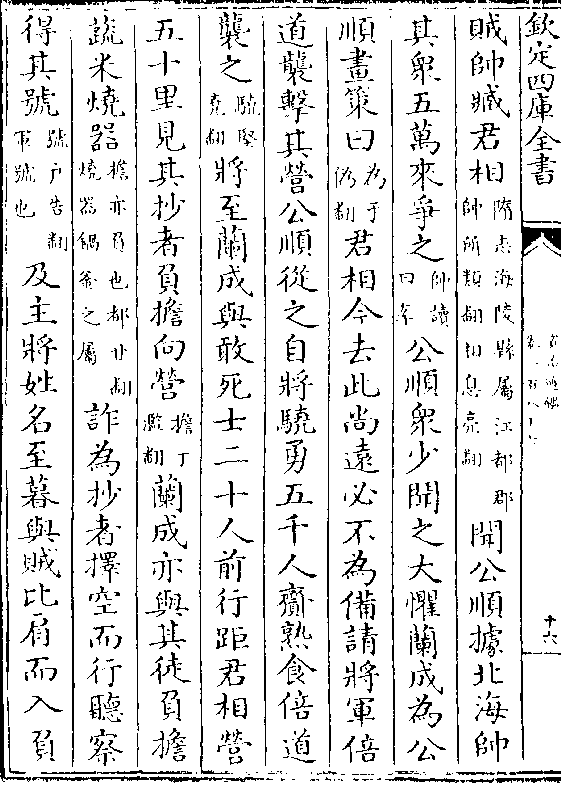 欽定四庫全書
十六
賊帥臧君相隋志海陵縣屬江都郡帥所類翻相息亮翻聞公順據北海帥
其衆五萬來爭之帥讀曰率公順衆少聞之大懼蘭成為公
順畫策曰為于偽翻君相今去此尚遠必不為備請將軍倍
道襲擊其營公順從之自將驍勇五千人齎熟食倍道
襲之驍堅堯翻將至蘭成與敢死士二十人前行距君相營
五十里見其抄者負擔向營擔丁濫翻蘭成亦與其徒負擔
蔬米燒器擔亦負也都甘翻燒器鍋釜之屬詐為抄者擇空而行聽察
得其號號戶告翻軍號也及主將姓名至暮與賊比肩而入負